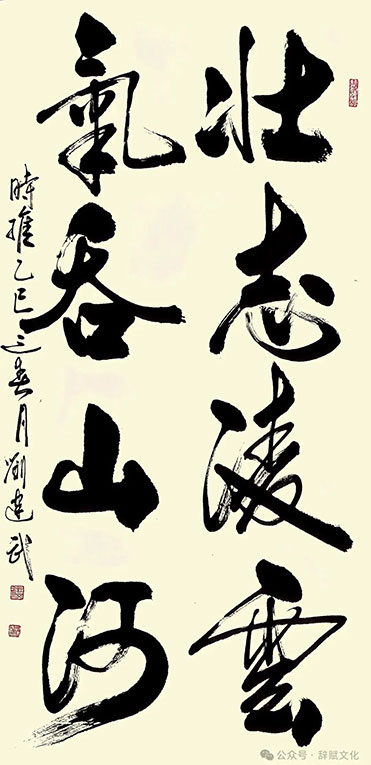 壮志凌雲
氣吞山河
時在乙巳之春月劉建武
公众号·辞赋文化